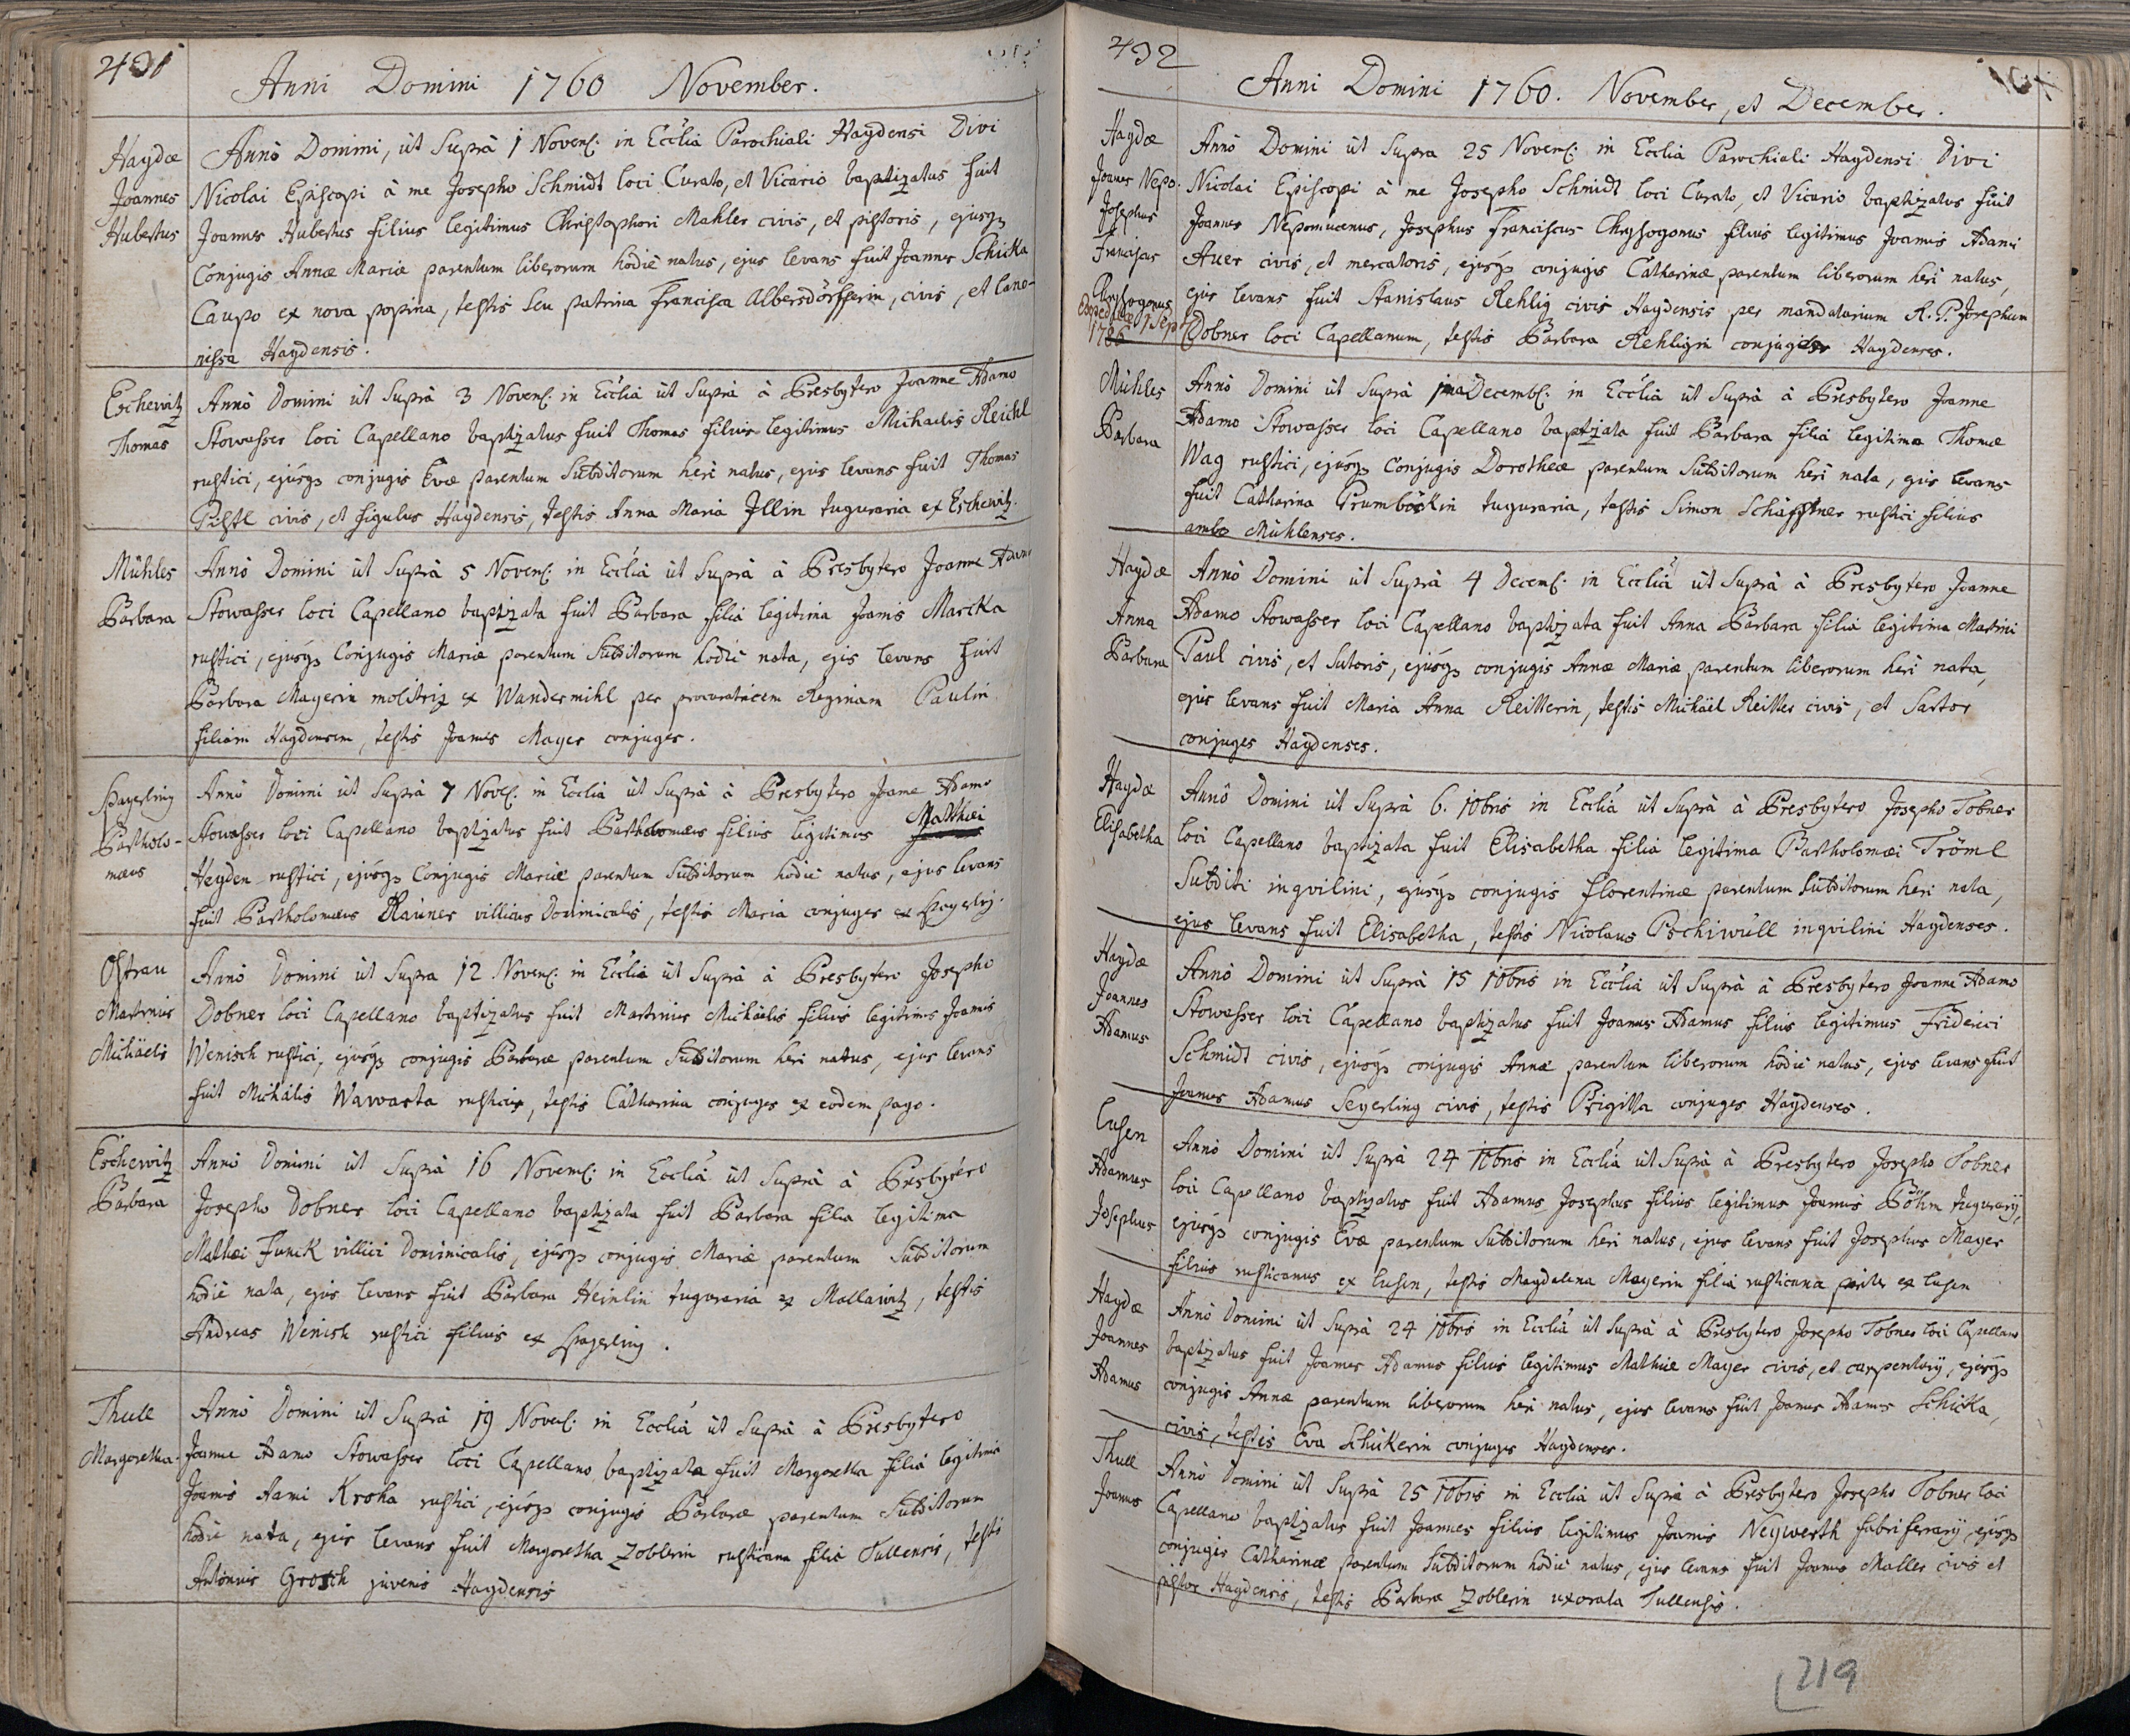 431
Anni Domini 1760 November.
Haydæ
Joannes
Hubertus
Anno Domini, ut Supra 1 Novemb: in Ecclia Parochiali Haydensi Divi
Nicolai Episcopi à me Josepho Schmidt loci Curato, et Vicario baptizatus fuit
Joannes Hubertus filius legitimus Christophori Mahler civis, et pistoris, ejusq
Conjugis Annæ Mariæ parentum liberorum hodie natus, ejus levans fuit Joannes Schicka
Caupo ex nova popina, testis seu patrina Francisca Albersdörfferin, civis, et lano-
nissa Haydensis.
Eschewitz
Thomas
Anno Domini ut Supra 3 Novemb: in Ecclia ut Supra à Presbytero Joanne Adamo
Stowasser loci Capellano baptizatus fuit Thomas filius legitimus Michaelis Reichl
rustici, ejusq conjugis Evæ parentum Subditorum heri natus, ejus levans fuit Thomas
civis, et figulus Haydensis, testis Anna Maria Illin tuguraria ex Eschewitz.
Mühles
Barbara
Anno Domini ut Supra 5 Novemb: in Ecclia ut Supra à Presbytero Joanne Adamo
Stowasser loci Capellano baptizata fuit Barbara filia legitima Joanis Marcka
rustici, ejusq Conjugis Mariæ parentum Subditorum hodie nata, ejus levans fuit
Barbara Mayerin molitrix ex Wandermihl per procuratricem Reginam Paulin
filiam Haydensem, testis Joannes Mayer conjuges.
Spayerling
Bartholo-
mæus
Anno Domini ut Supra 7 Nove: in Ecclia ut Supra à Presbytero Joanne Adamo
Stowasser loci Capellano baptizatus fuit Bartholomæus filius legitimus Matthiei
Heyden rustici, ejusq Conjugis Mariæ parentum Subditorum hodie natus, ejus levans
fuit Bartholomæus Rauner villicus Dominicalis, testis Maria conjuges ex Spayerling.
Ostrau
Martinus
Michäelis
Anno Domini ut Supra 12 Novemb: in Ecclia ut Supra à Presbytero Josepho
Dobner loci Capellano baptizatus fuit Martinus Michäelis filius legitimus Joanis
Wenisch rustici, ejusq conjugis Barbaræ parentum Subditorum heri natus, ejus levans
fuit Michälis Wawarta rusticus, testis Catharina conjuges ex eodem pago.
Eschewitz
Barbara
Anno Domini ut Supra 16 Novemb: in Ecclia ut Supra à Presbytero
Josepho Dobner loci Capellano baptizata fuit Barbara filia legitima
Mathæi Funck villici Dominicalis, ejusq conjugis Mariæ parentum Subditorum
hodie nata, ejus levans fuit Barbara Heinlin tuguraria ex Mallawitz, testis
Andreas Wenisch rustici filius ex Spayerling.
Thull
Margaretha.
Anno Domini ut Supra 19 Nove: in Ecclia ut Supra à Presbytero
Joanne Adamo Stowasser loci Capellano baptizata fuit Margaretha filia legitima
Joanis Aami Kroha rustici, ejusq conjugis Barbaræ parentum Subditorum
hodie nata, ejus levans fuit Margaretha Zoblerin rusticana filia Tullensis, testis
Antonius Grosch juvenis Haydensis
432
Anni Domini 1760. November, et December.
Haydæ
Joannes Nepo.
Josephus
Franciscus
Chrysogonus
1 Sept
1786
Anno Domini ut Supra 25 Novemb: in Ecclia Parochiali Haydensi Divi
Nicolai Episcopi à me Josepho Schmidt loci Curato, et Vicario baptizatus fuit
Joannes Nepomucenus, Josephus Franciscus Chrysogonus filius legitimus Joannis Adami
Auer civis, et mercatoris, ejusq conjugis Catharinæ parentum liberorum heri natus,
ejus levans fuit Stanislaus Rehlig civis Haydensis per mandatarium R. P. Josephum
Dobner loci Capellanum, testis Barbara Rehligin conjuges Haydenses.
Mühles
Barbara
Anno Domini ut Supra 1ma Decemb: in Ecclia ut Supra à Presbytero Joanne
Adamo Stowasser loci Capellano baptizata fuit Barbara filia legitima Thomæ
Wag rustici, ejusq Conjugis Dorotheæ parentum Subditorum heri nata, ejus levans
fuit Catharina Grumböckin tuguraria, testis Simon Schäfftner rustici filius
ambo Mühlenses.
Haydæ
Anna
Barbara
Anno Domini ut Supra 4 Decemb: in Ecclia ut Supra à Presbytero Joanne
Adamo Stowasser loci Capellano baptizata fuit Anna Barbara filia legitima Martini
Paul civis, et Sutoris, ejusq conjugis Annæ Mariæ parentum liberorum heri nata,
ejus levans fuit Maria Anna Reitterin, testis Michäel Reitter civis, et Sartor
conjuges Haydenses.
Haydæ
Elisabetha
Anno Domini ut Supra 6. 10bris in Ecclia ut Supra à Presbytero Josepho Tobner
loci Capellano baptizata fuit Elisabetha filia legitima Bartholomæi Tröml
Subditi inqvilini, ejusq conjugis Florentinæ parentum Subditorum heri nata,
ejus levans fuit Elisabetha, testis Nicolaus Pschiwull inqvilini Haydenses.
Haydæ
Joannes
Adamus
Anno Domini ut Supra 15 10bris in Ecclia ut Supra à Presbytero Joanne Adamo
Stowasser loci Capellano baptizatus fuit Joannes Adamus filius legitimus Friderici
Schmidt civis, ejusq conjugis Annæ parentum liberorum hodie natus, ejus levans fuit
Joannes Adamus Seyerling civis, testis Brigitta conjuges Haydenses.
Lusen
Adamus
Josephus
Anno Domini ut Supra 24 10bris in Ecclia ut Supra à Presbytero Josepho Tobner
loci Capellano baptizatus fuit Adamus Josephus filius legitimus Joannis Böhm tugurarij,
ejusq conjugis Evæ parentum Subditorum heri natus, ejus levans fuit Josephus Mayer
filius rusticanus ex Lusen, testis Magdalena Mayerin filia rusticana pariter ex Lusen
Haydæ
Joannes
Adamus
Anno Domini ut Supra 24 10bris in Ecclia ut Supra à Presbytero Josepho Tobner loci Capellano
baptizatus fuit Joannes Adamus filius legitimus Mathiæ Mayer civis, et carpentarij, ejusq
conjugis Annæ parentum liberorum heri natus, ejus levans fuit Joannes Adamus Schicka,
civis, testis Eva Schickerin conjuges Haydenses.
Thull
Joannes
Anno Domini ut Supra 25 10bris in Ecclia ut Supra à Presbytero Josepho Tobner loci
Capellano baptizatus fuit Joannes filius legitimus Joannis Neywerth fabri ferrarij, ejusq
conjugis Catharinæ parentum Subditorum hodie natus, ejus levans fuit Joannes Maller civis et
pistor Haydensis, testis Barbara Zoblerin uxorata Tullensis.
219